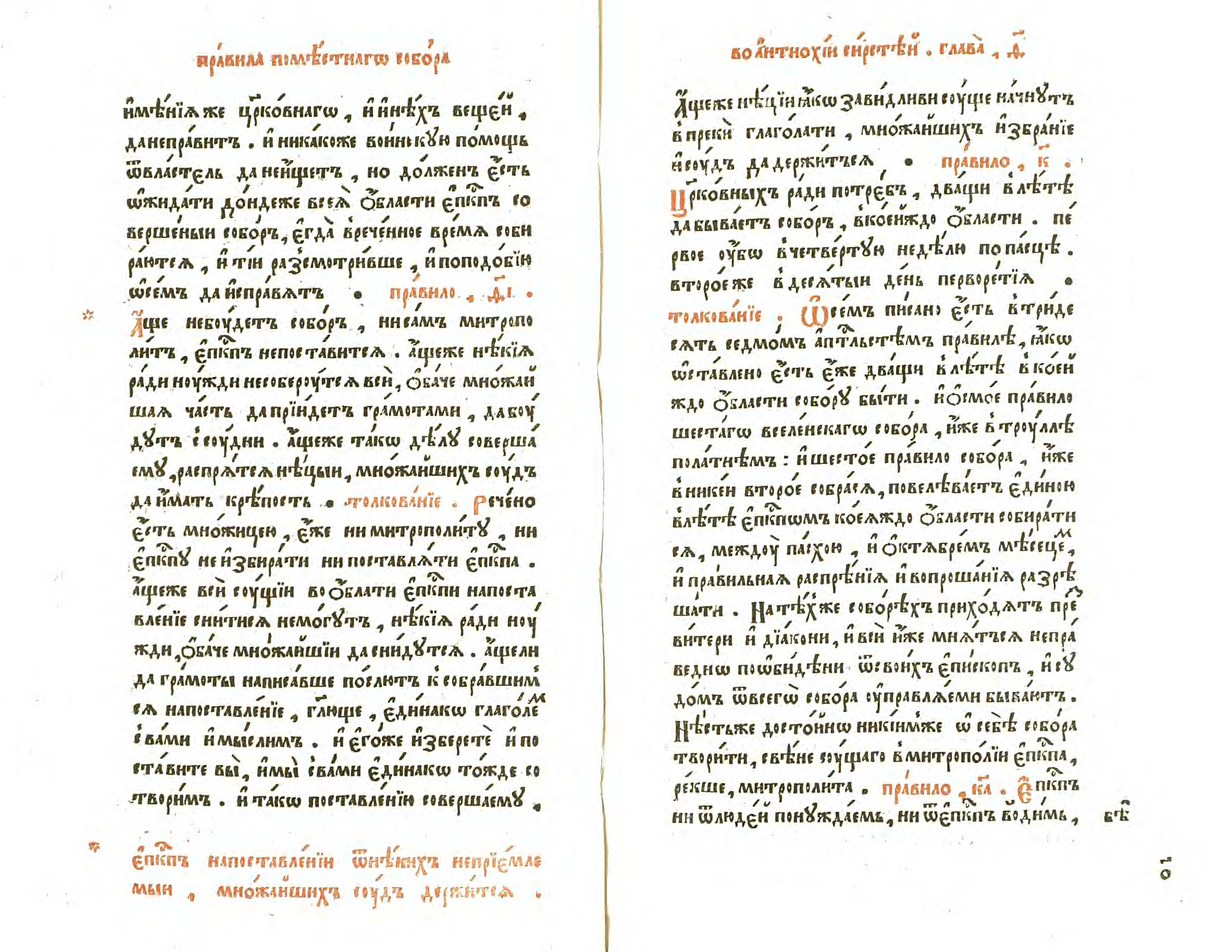 пра́вила помѣ́стнагѡ собо́ра
и҆мѣ́нїѧ же цр҃ко́внагѡ , и҆ и҆нѣ́хъ веще́й ,
да не пра́витъ . и҆ никако́же во́иньскую по́мощь
ѿ власте́ль да не и҆́щетъ , но до́лженъ є҆́сть
ѡ҆жида́ти до́ндеже всеѧ̀ ѻ҆́бласти є҆пк҃пъ со
верше́ныи собо́ръ, є҆гда̀ в̾рече́нное вре́мѧ соби
ра́ютсѧ , и҆ ті́и разсмотри́вше , и҆ по подо́бїю
ѡ҆ се́мъ да и҆спра́вѧтъ . пра́вило , д҃і .
А҆́ще небу́детъ собо́ръ , ни са́мъ митропо
ли́тъ , є҆пк҃пъ непоста́витсѧ . а҆́щеже нѣ́кїѧ
ра́ди ноу́жди несоберу́тсѧ всѝ, ѻ҆ба́че мно́жай
шаѧ ча́сть да прїи́детъ гра́мотами , да боу́
дутъ с̾соу́дни . а҆́щеже та́кѡ дѣ́лу соверша́
ему , распрѧ́тсѧ нѣ́цыи, мно́жаишихъ соу́дъ
да и҆́мать крѣ́пость . толкова́нїе . Рече́но
є҆́сть мно́жицею , є҆́же ни митрополи́ту , ни
є҆пк҃пу не и҆збира́ти ни поставлѧ́ти є҆пк҃па .
а҆́щеже всѝ соу́щїи во ѻ҆́бласти є҆пк҃пи на поста
вле́нїе сни́тисѧ немо́гутъ , нѣ́кїѧ ра́ди ноу́
жди, ѻ҆ба́че мно́жаишїи да сни́дутсѧ . а҆́ще ли
да гра́моты написа́вше по́слютъ к̾собра́вшим
сѧ на поставле́нїе , гл҃юще , є҆ди́накѡ глаго́лем
с̾ва́ми и҆ мы́слимъ . и҆ є҆го́же и҆зберетѐ и҆ по
ста́вите вы̀, и҆ мы̀ с̾ва́ми є҆ди́накѡ то́жде со
твори́мъ . и҆ та́кѡ поставле́нїю соверша́ему ,
є҆пк҃пъ на поставле́нїи ѿ нѣ́кихъ непрїе́мле
мыи , мно́жаишихъ соу́дъ держи́тсѧ .
во а҆нтїохі́и си́рстѣй . глава̀ , д҃
А҆́щеже нѣ́цїи ꙗ҆́кѡ зави́дливи су́ще начну́тъ
в̾прекѝ глаго́лати , мно́жаишихъ и҆збра́нїе
и҆ соу́дъ да держи́тьсѧ . пра́вило , к҃ .
Цр҃ко́вныхъ ра́ди потре́бъ , два́щи в̾лѣ́тѣ
да быва́етъ собо́ръ , в̾ко́ейждо ѻ҆́бласти . пе́
рвое оу҆́бѡ в̾четве́ртую недѣ́лю по па́сцѣ .
второ́е же в̾десѧ́тыи де́нь перворе́тїѧ .
толкова́нїе . Ѡ҆ се́мъ пи́сано є҆́сть в̾три́де
сѧть седмо́мъ а҆пⷭ҇тльстѣмъ пра́вилѣ, ꙗ҆́кѡ
ѡ҆ста́влено є҆́сть є҆́же два́щи в̾лѣ́тѣ в̾ко́ей
ждо ѻ҆́бласти собо́ру бы́ти . и҆ ѻ҆смо́е пра́вило
шеста́гѡ вселе́нскагѡ собо́ра , и҆́же в̾троу́ллѣ
пола́тнѣмъ : и҆ шесто́е пра́вило собо́ра , и҆́же
в̾нике́и второ́е собра́сѧ, повелѣва́етъ є҆ди́ною
в̾лѣ́тѣ є҆пк҃пѡмъ коеѧ́ждо ѻ҆́бласти собира́ти
сѧ , междоу̀ па́схою , и҆ ѻ҆ктѧ́бремъ мѣ́сецем ,
и҆ пра́вильнаѧ распрѣ́нїѧ и҆ вопроша́нїѧ разрѣ
ша́ти . На тѣ́хже собо́рѣхъ прихо́дѧтъ пре
ви́тери и҆ дїа́кони , и҆ всѝ и҆́же мнѧ́тъсѧ непра́
веднѡ поѡби́дѣни ѿ свои́хъ є҆пи́скопъ , и҆ су
до́мъ ѿ всегѡ̀ собо́ра оу҆правлѧ́еми быва́ютъ .
Нѣ́стьже досто́йнѡ никі́имже ѡ҆ себѣ̀ собо́ра
твори́ти, свѣ́не соу́щаго в̾митропо́лїи є҆пк҃па ,
ре́кше, митрополи́та . пра́вило , к҃а . Є҆пк҃пъ
ни ѿ люде́й пону́ждаемь, ни ѿ є҆пк҃пъ во́димь ,
бѣ